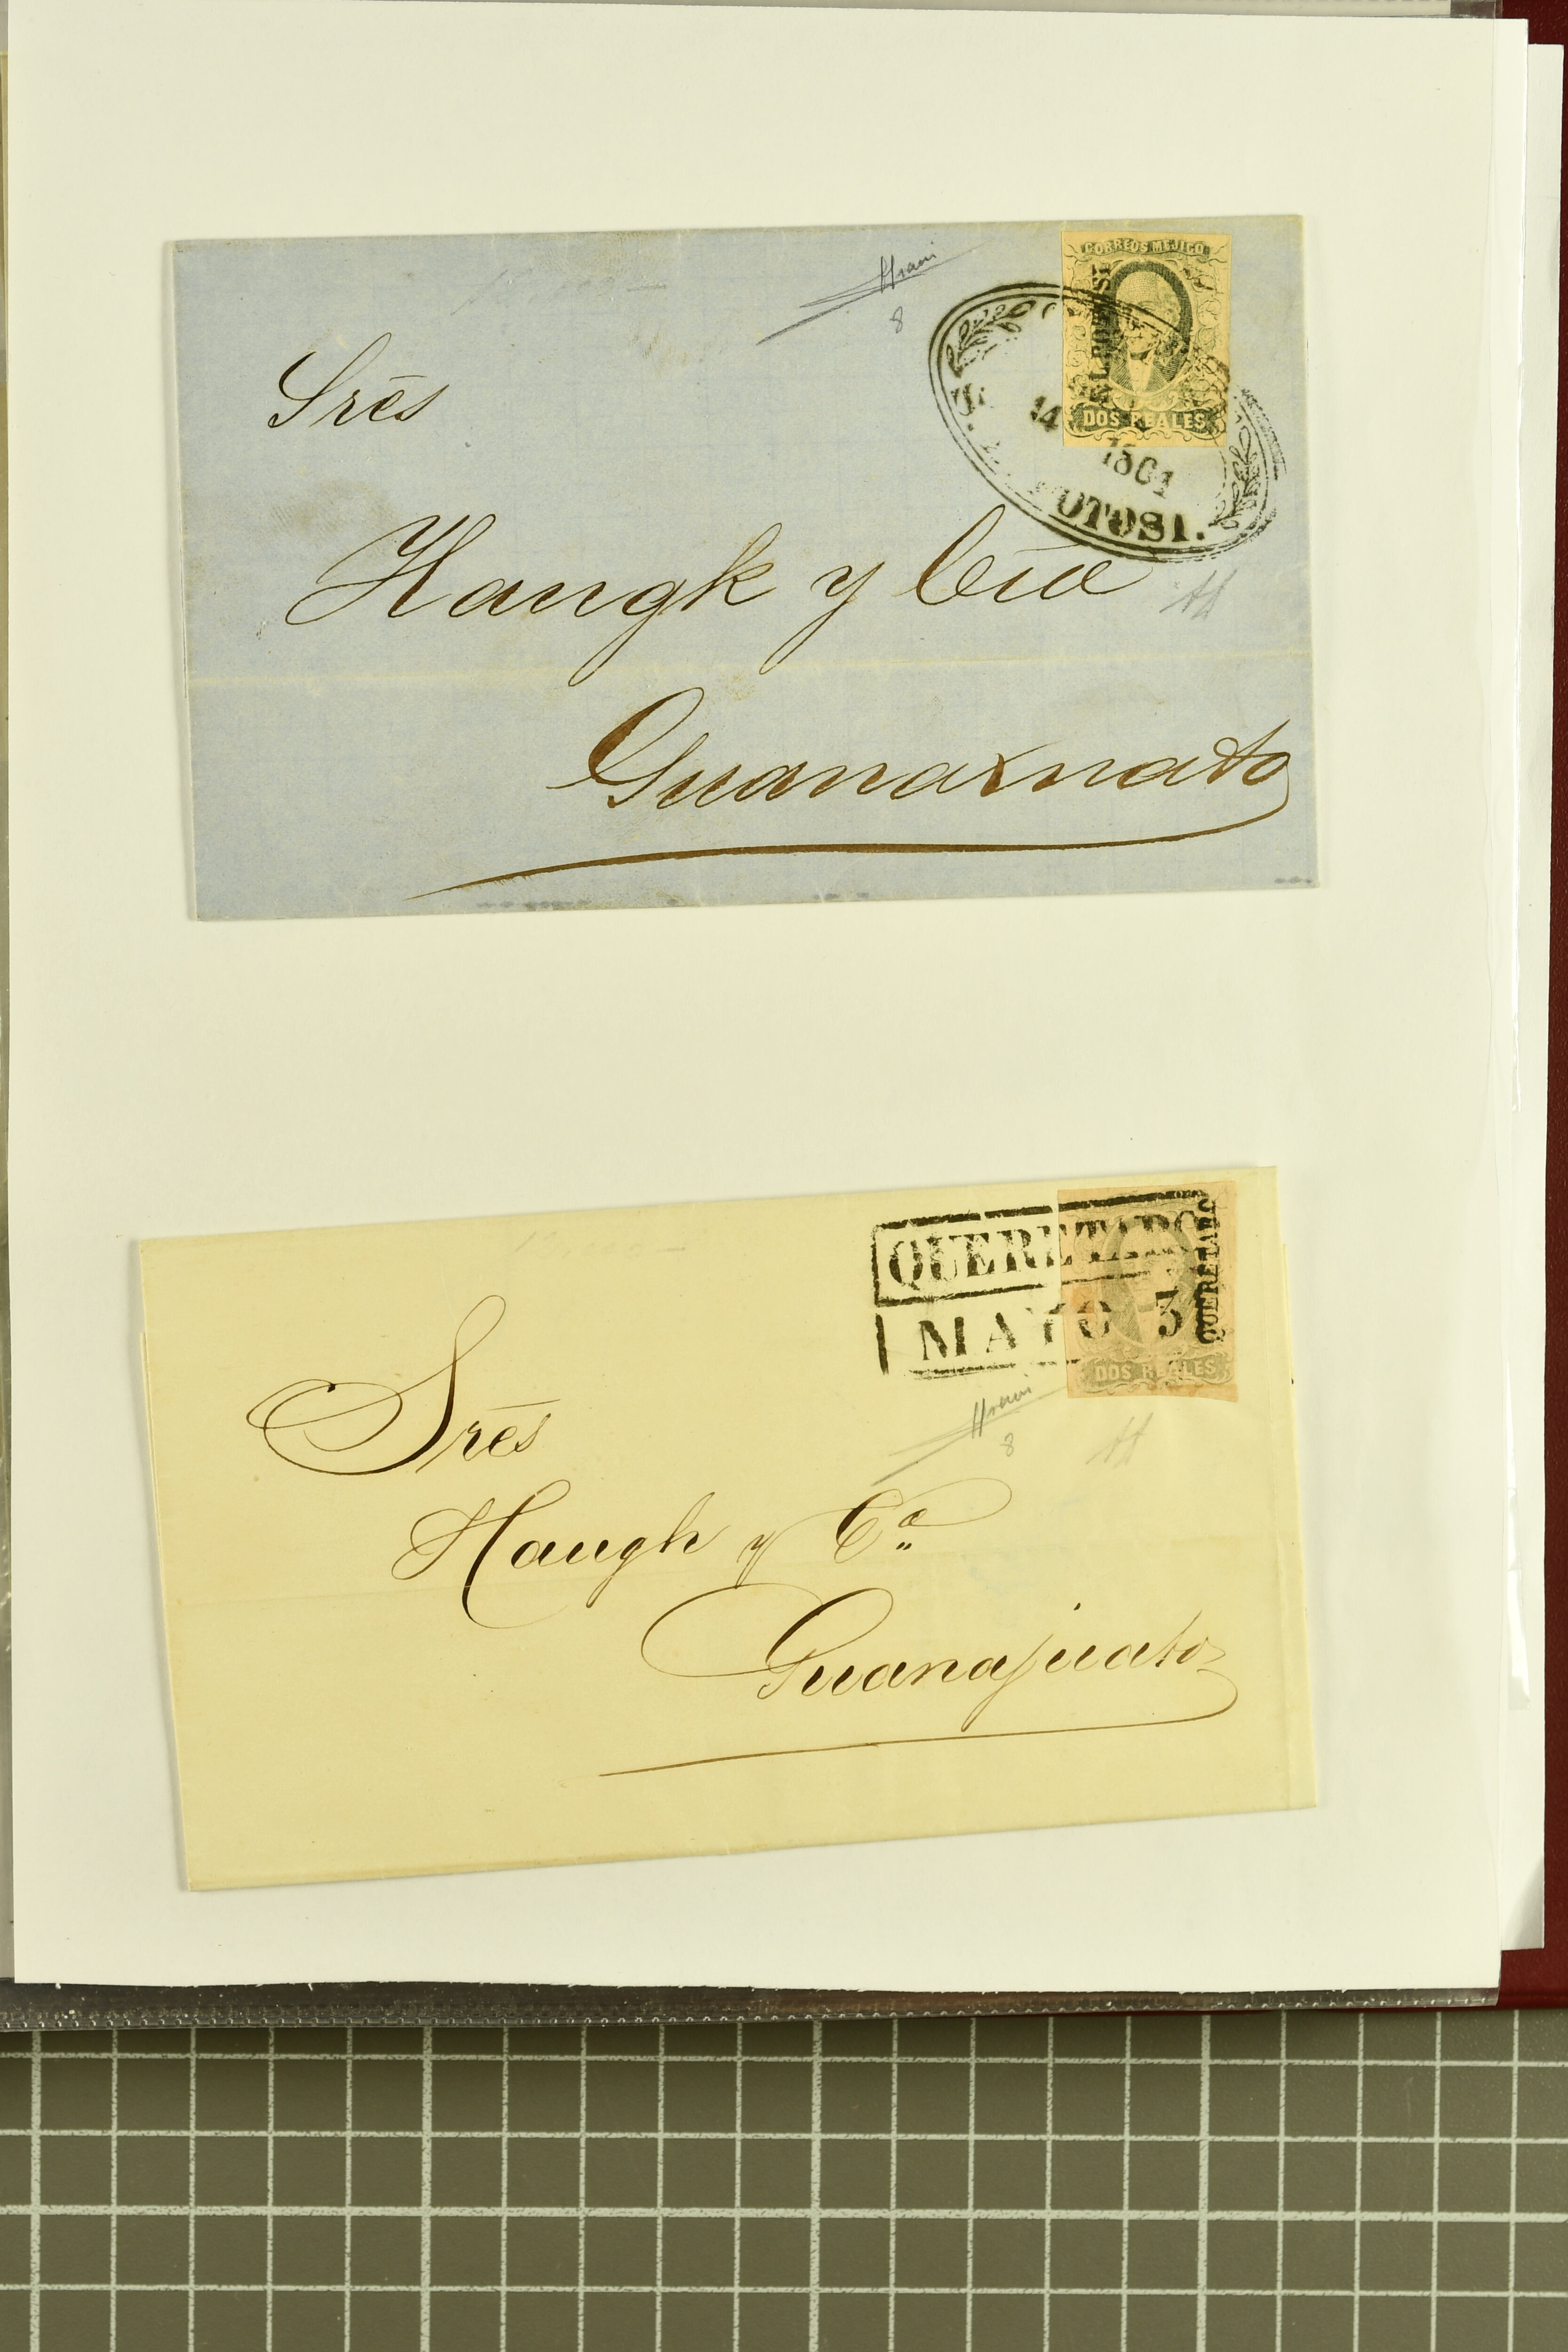 CORREOS MEJICO
DOS REALES
14
1861
POTOSI.
8
Srēs
Haugk y Cia
Guanaxuato
QUERETARO
MAYO 3
QUERETARO
DOS REALES
8
Srēs
Haugh y Cª
Guanajuato